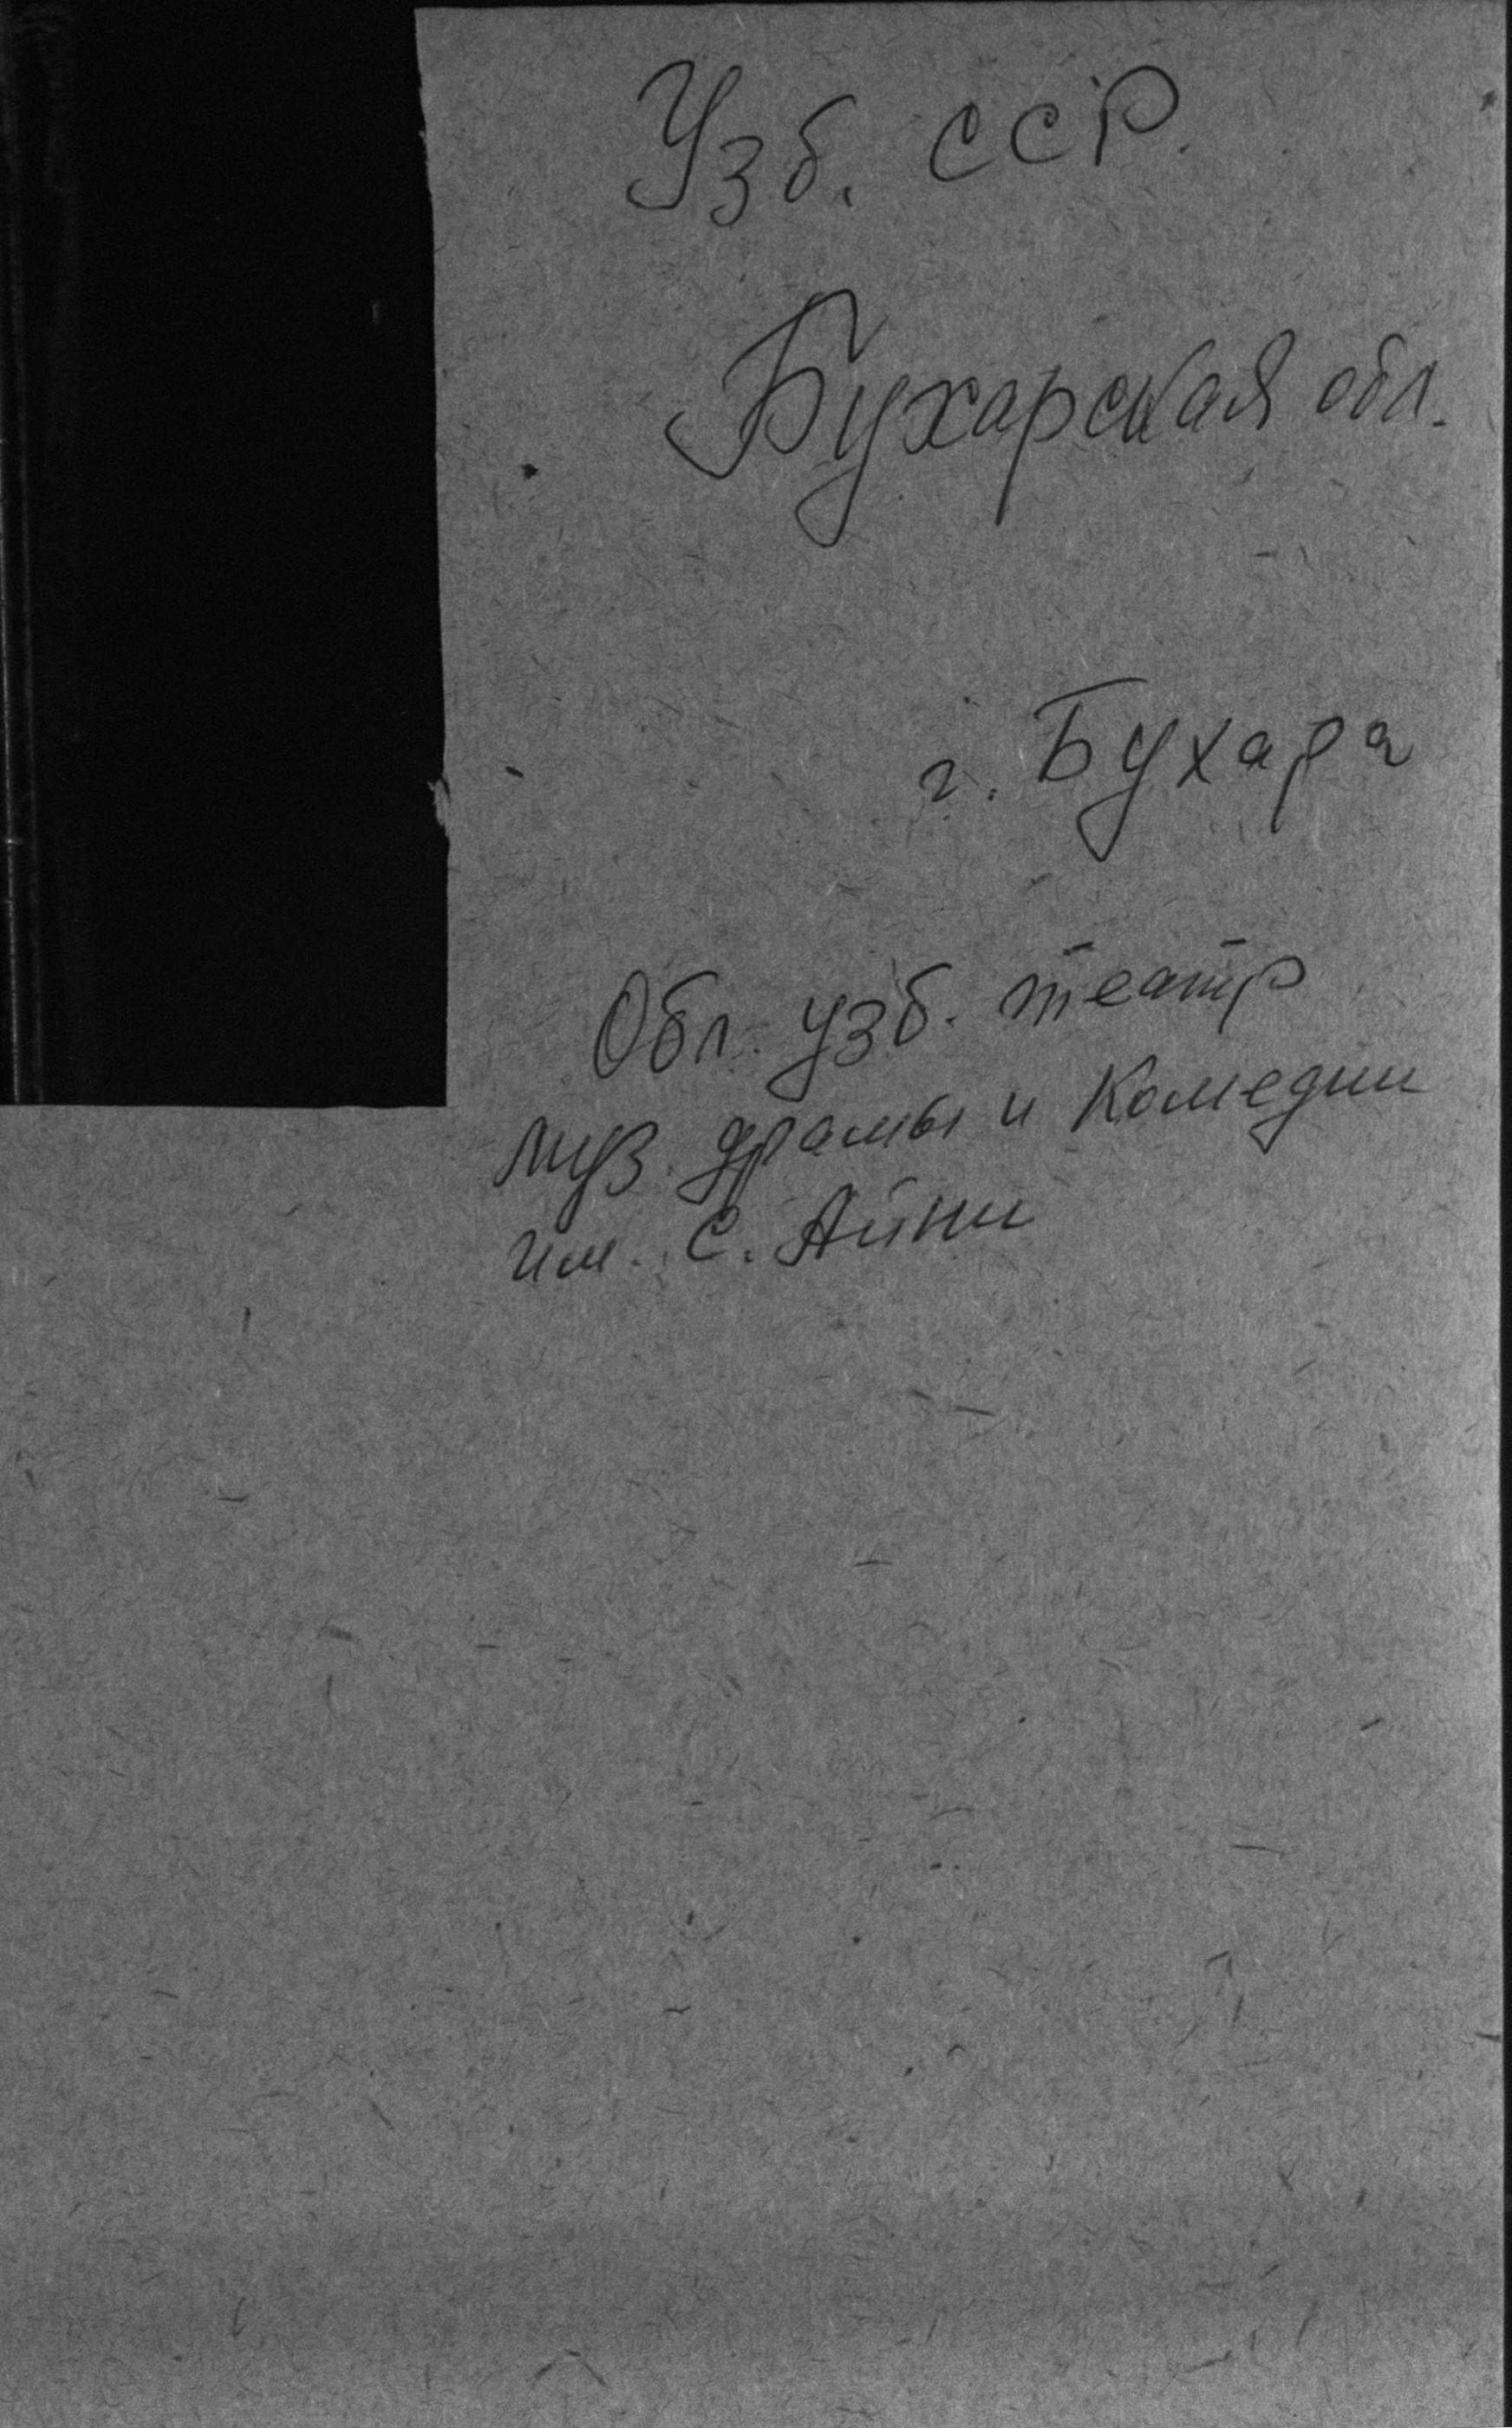 Узб. ССР.
Бухарская обл.
г. Бухара
Обл. узб. театр
муз. драмы и комедии
им. С. Айни